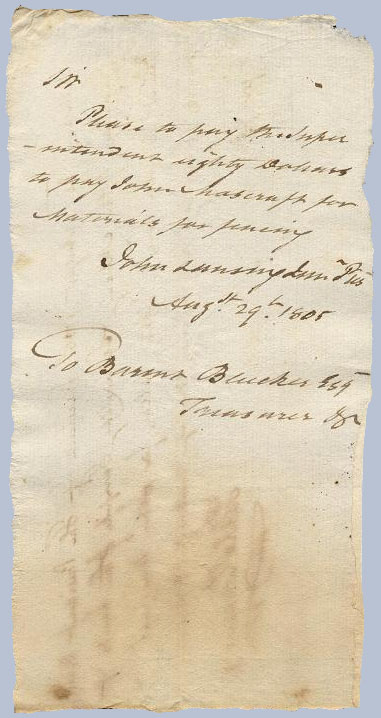 Sir
Please to pay the Super
-intendent eighty Dollars
to pay John Moscraft for
Materials for fencing
John Lansing Jun.r Pres
Aug.st 29th 1805
To Barent Bleecker Esq
Treasurer &c